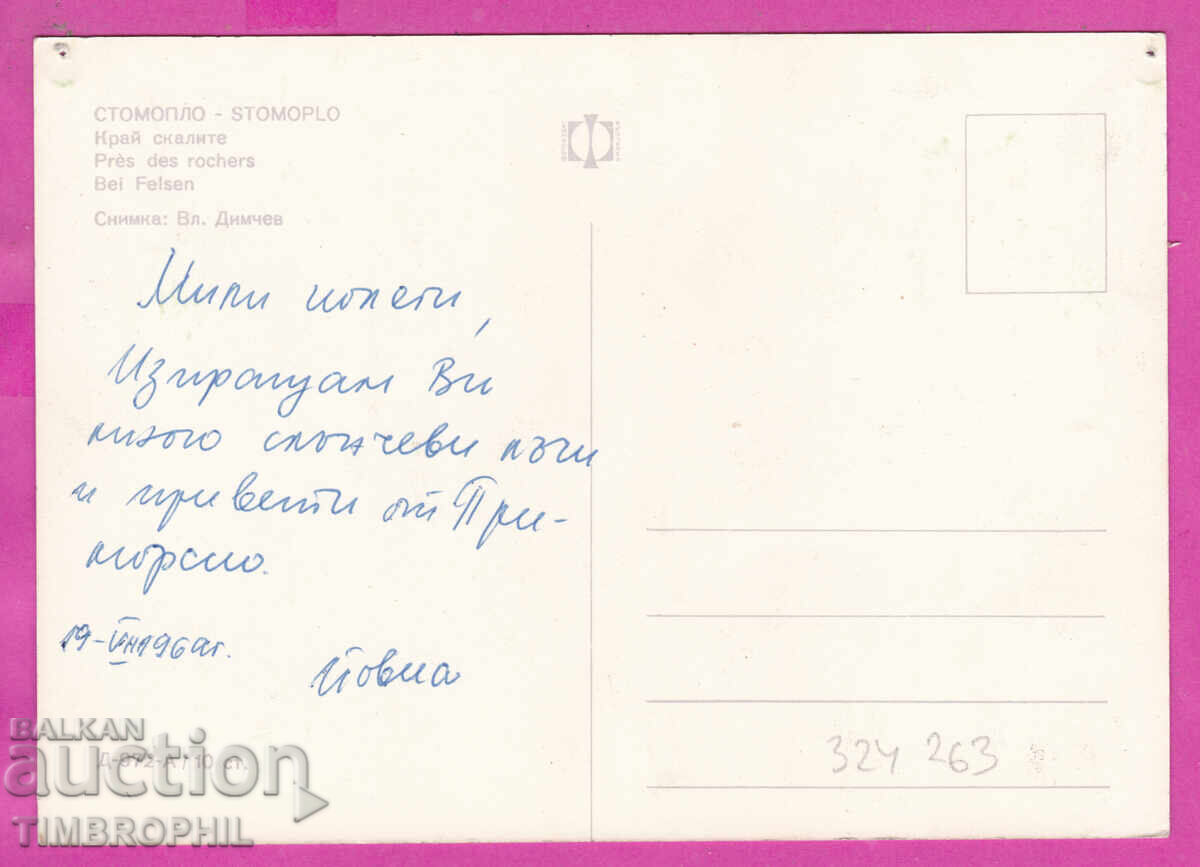 СТОМОПЛО - STOMOPLO
Край скалите
Près des rochers
Bei Felsen
Снимка: Вл. Димчев
Мили колеги,
Изпращам Ви
много слънчеви лъчи
и привети от При-
морско.
19- 1969г.
Йовка
Д-972-А / 10 ст.
324 263
BALKAN
auction
TIMBROPHIL